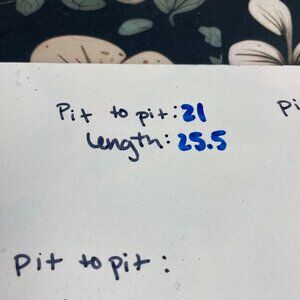 Pit to pit: 21
Length: 25.5
pi
Pit to pit: